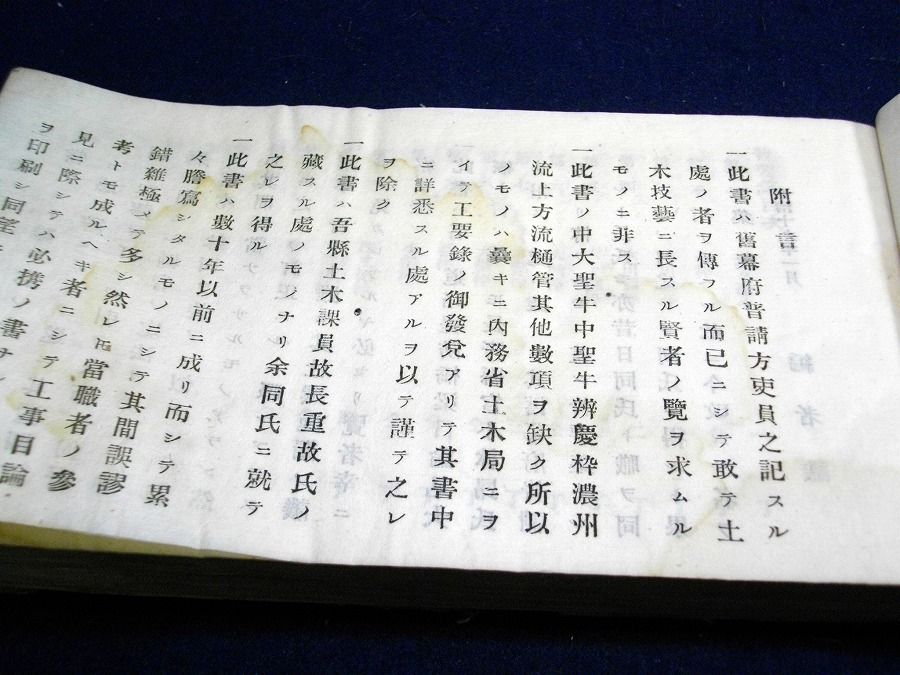 附言
一此書ハ舊幕府普請方吏員之記スル
處ノ者ヲ傳フル而已ニシテ敢テ土
木技藝ニ長スル賢者ノ覽ヲ求ムル
モノニ非ス
一此書ノ中大聖牛中聖牛辨慶枠濃州
流上方流樋管其他數項ヲ缺ク所以
ノモノハ曩キニ內務省土木局ニヲ
イテ工要錄ノ御發兌アリテ其書中
ニ詳悉スル處アルヲ以テ謹テ之レ
ヲ除ク
一此書ハ吾縣土木課員故長重故氏ノ
藏スル處ノモノナリ余同氏ニ就テ
之レヲ得ル
一此書ハ數十年以前ニ成リ而シテ累
々謄寫シタルモノニシテ其間誤謬
錯雜極メテ多シ然レ𪜈當職者ノ參
考トモ成ルヘキ者ニシテ工事日論
見ニ際シテハ必携ノ書ナ
ヲ印刷シ同望